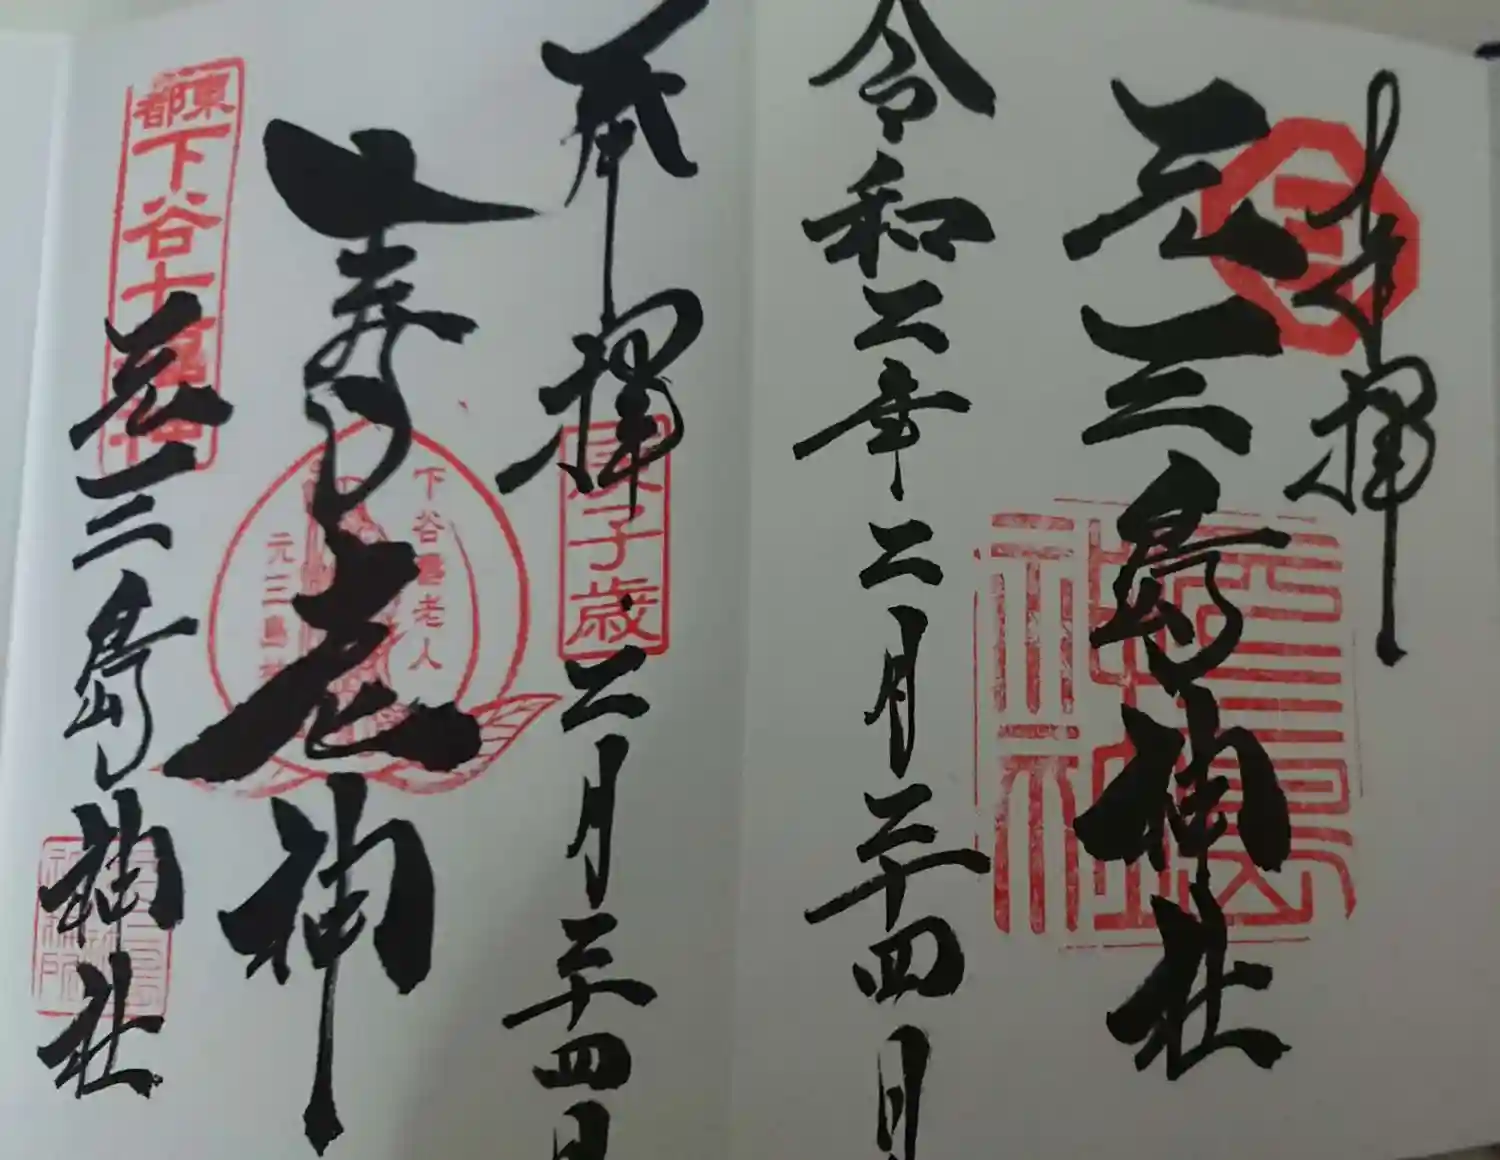 奉拝
元三島神社
令和二年二月二十四日
奉拝
庚子歳
二月二十四日
寿老神
下谷壽老人
元三島神
東都
下谷七福神
元三島神社